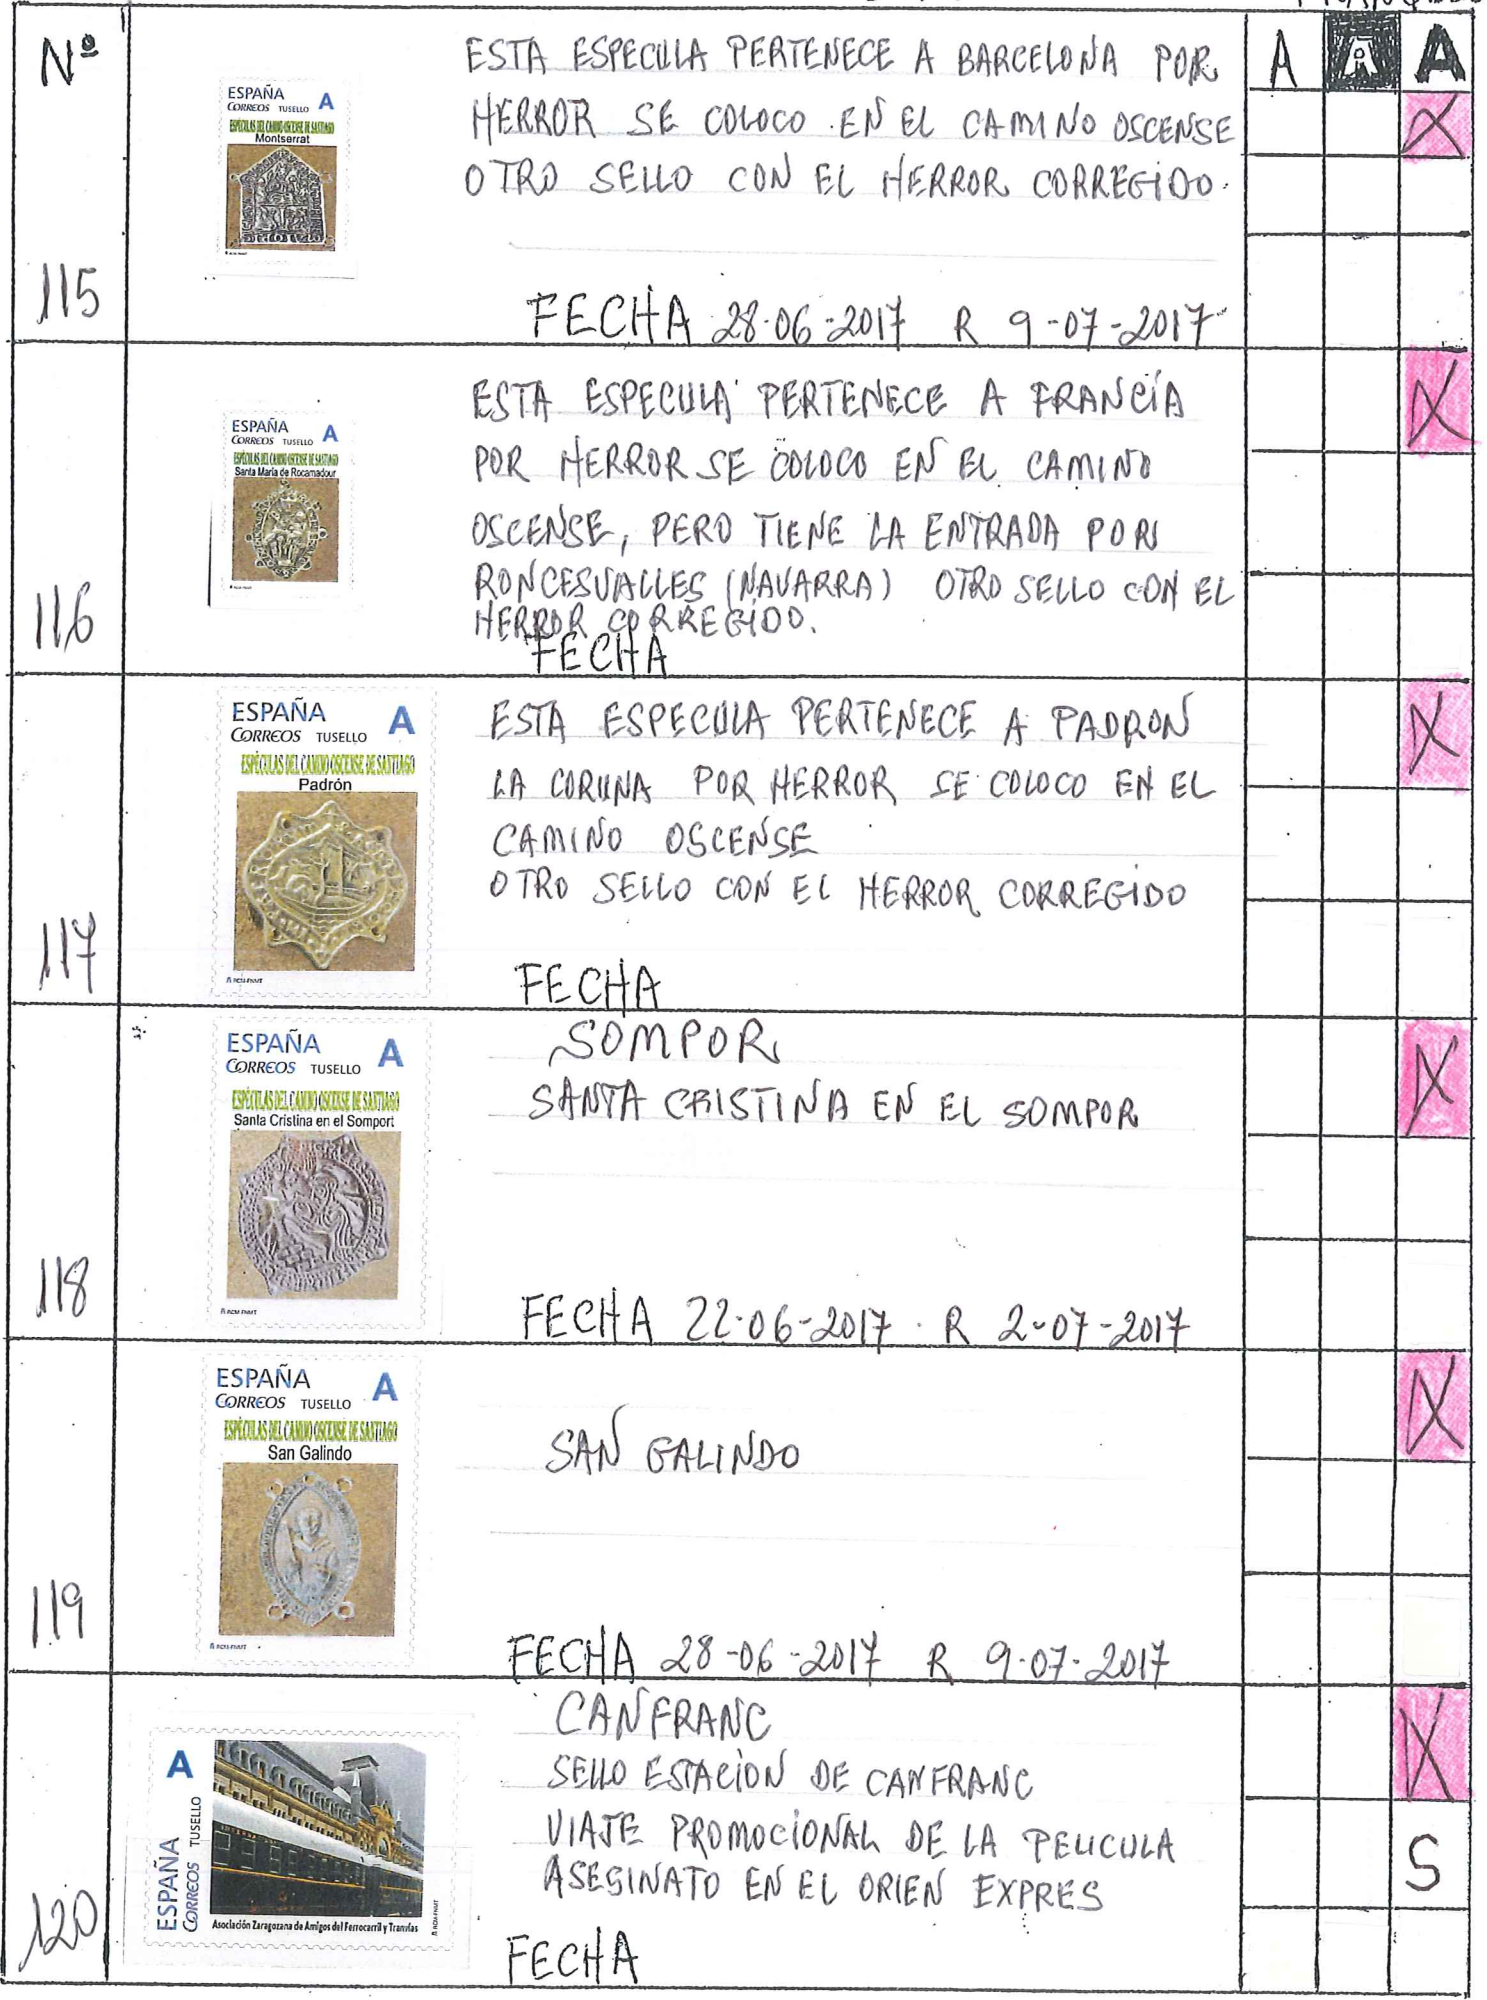 Nº
A A A
ESPAÑA
CORREOS TUSELLO A
ESPÉCULAS DEL CAMINO OSCENSE DE SANTIAGO
Montserrat
ESTA ESPECULA PERTENECE A BARCELONA POR
HERROR SE COLOCO EN EL CAMINO OSCENSE
OTRO SELLO CON EL HERROR CORREGIDO.
X
115
FECHA 28-06-2017 R 9-07-2017
ESPAÑA
CORREOS TUSELLO A
ESPÉCULAS DEL CAMINO OSCENSE DE SANTIAGO
Santa María de Rocamadour
ESTA ESPECULA PERTENECE A FRANCIA
POR HERROR SE COLOCO EN EL CAMINO
OSCENSE, PERO TIENE LA ENTRADA POR
RONCESVALLES (NAVARRA) OTRO SELLO CON EL
HERROR CORREGIDO.
X
116
FECHA
ESPAÑA
CORREOS TUSELLO A
ESPÉCULAS DEL CAMINO OSCENSE DE SANTIAGO
Padrón
RCM-FNMT
ESTA ESPECULA PERTENECE A PADRON
LA CORUNA POR HERROR SE COLOCO EN EL
CAMINO OSCENSE
OTRO SELLO CON EL HERROR CORREGIDO
X
117
FECHA
ESPAÑA
CORREOS TUSELLO A
ESPÉCULAS DEL CAMINO OSCENSE DE SANTIAGO
Santa Cristina en el Somport
RCM-FNMT
SOMPOR
SANTA CRISTINA EN EL SOMPOR
X
118
FECHA 22-06-2017 R 2-07-2017
ESPAÑA
CORREOS TUSELLO A
ESPÉCULAS DEL CAMINO OSCENSE DE SANTIAGO
San Galindo
RCM-FNMT
SAN GALINDO
X
119
FECHA 28-06-2017 R 9-07-2017
A
ESPAÑA
CORREOS TUSELLO
Asociación Zaragozana de Amigos del Ferrocarril y Tranvías
RCM-FNMT
CANFRANC
SELLO ESTACION DE CANFRANC
VIAJE PROMOCIONAL DE LA PELICULA
ASESINATO EN EL ORIEN EXPRES
X
S
120
FECHA